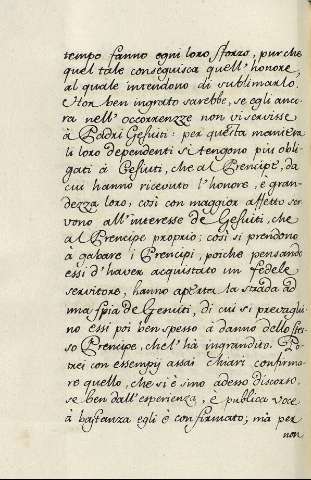 tempo fanno ogni loro sforzo, pur che
quel tale conseguisca quell'honore,
al quale intendono di sublimarlo.
Hor ben ingrato sarebbe, se egli anco-
ra nell'occorrenzze non vi servisse
à Padri Gesuiti: per questa maniera
li loro dependenti si tengono più obli-
gati à Gesuiti, che al Prencipe, da
cui hanno ricevuto l'honore, e gran-
dezza loro; così con maggior affetto ser-
vono all'interesse de Gesuiti, che
al Prencipe proprio; così si prendono
à gabare i Prencipi, poiche pensando
essi d'haver acquistato un fedele
servitore, hanno aperta la strada ad
una spia de Gesuiti, di cui si prevaglio-
no essi poi ben spesso à danno dello stes-
so Prencipe, che l'hà ingrandito. Po-
trei con essempij assai chiari confirma-
re quello, che si è sino adesso discorso,
se ben dall'esperienza, è publica voce
à bastanza egli è confirmato; mà per
non